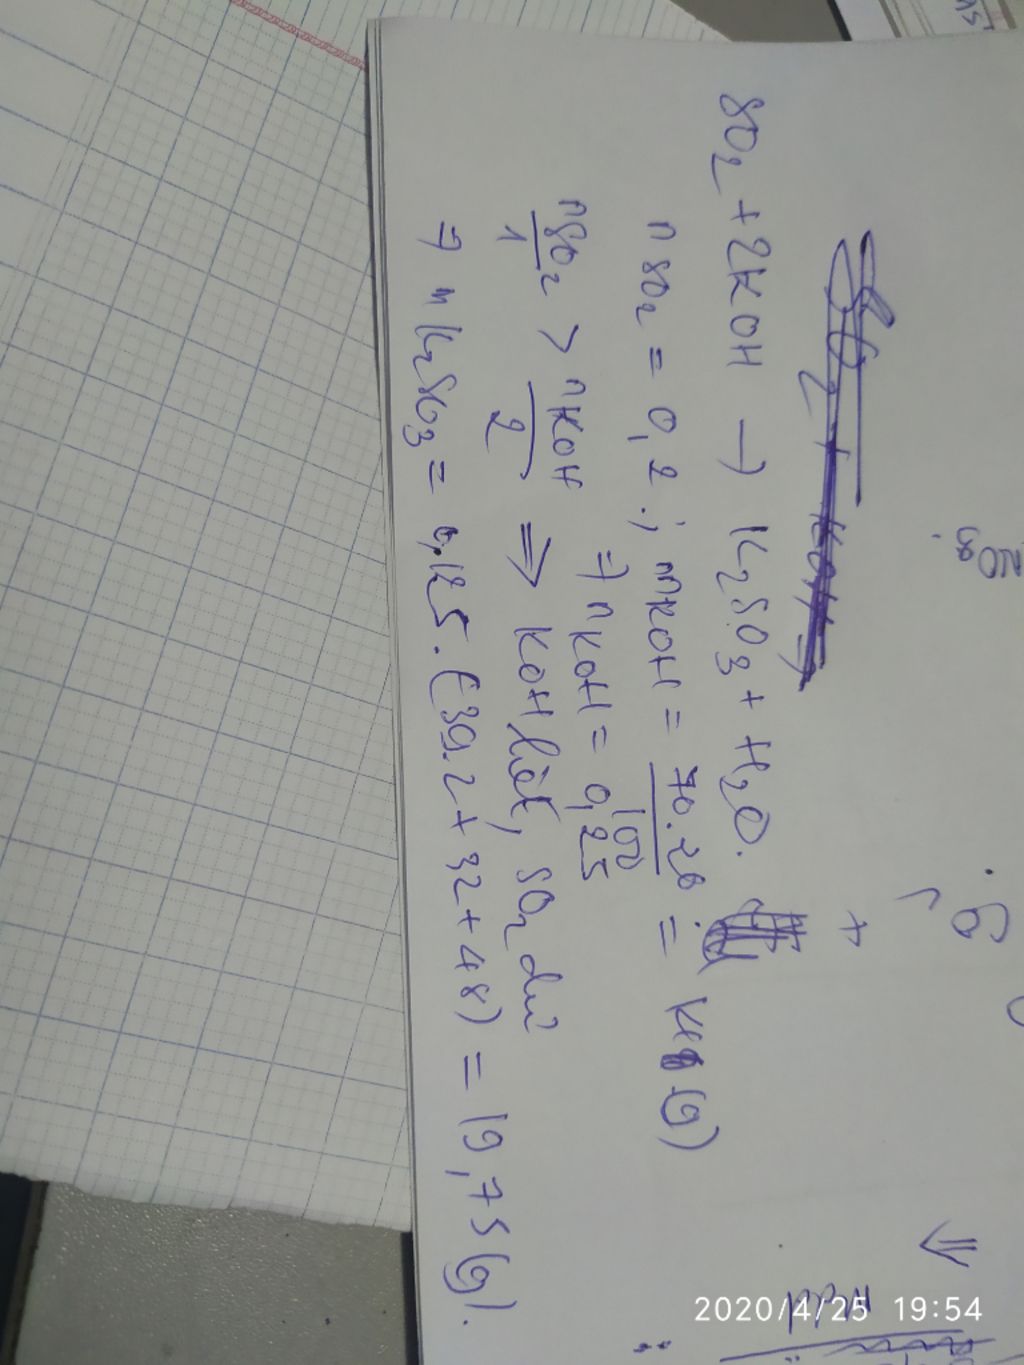 SO2 + 2KOH → K2SO3 + H2O.
nSO2 = 0,2 ; mKOH = 70.20/100 = (g)
⇒ nKOH = 0,25
nSO2/1 > nKOH/2 ⇒ KOH hết, SO2 dư
⇒ mK2SO3 = 0,125.(39.2+32+48) = 19,75(g).
2020/4/25 19:54